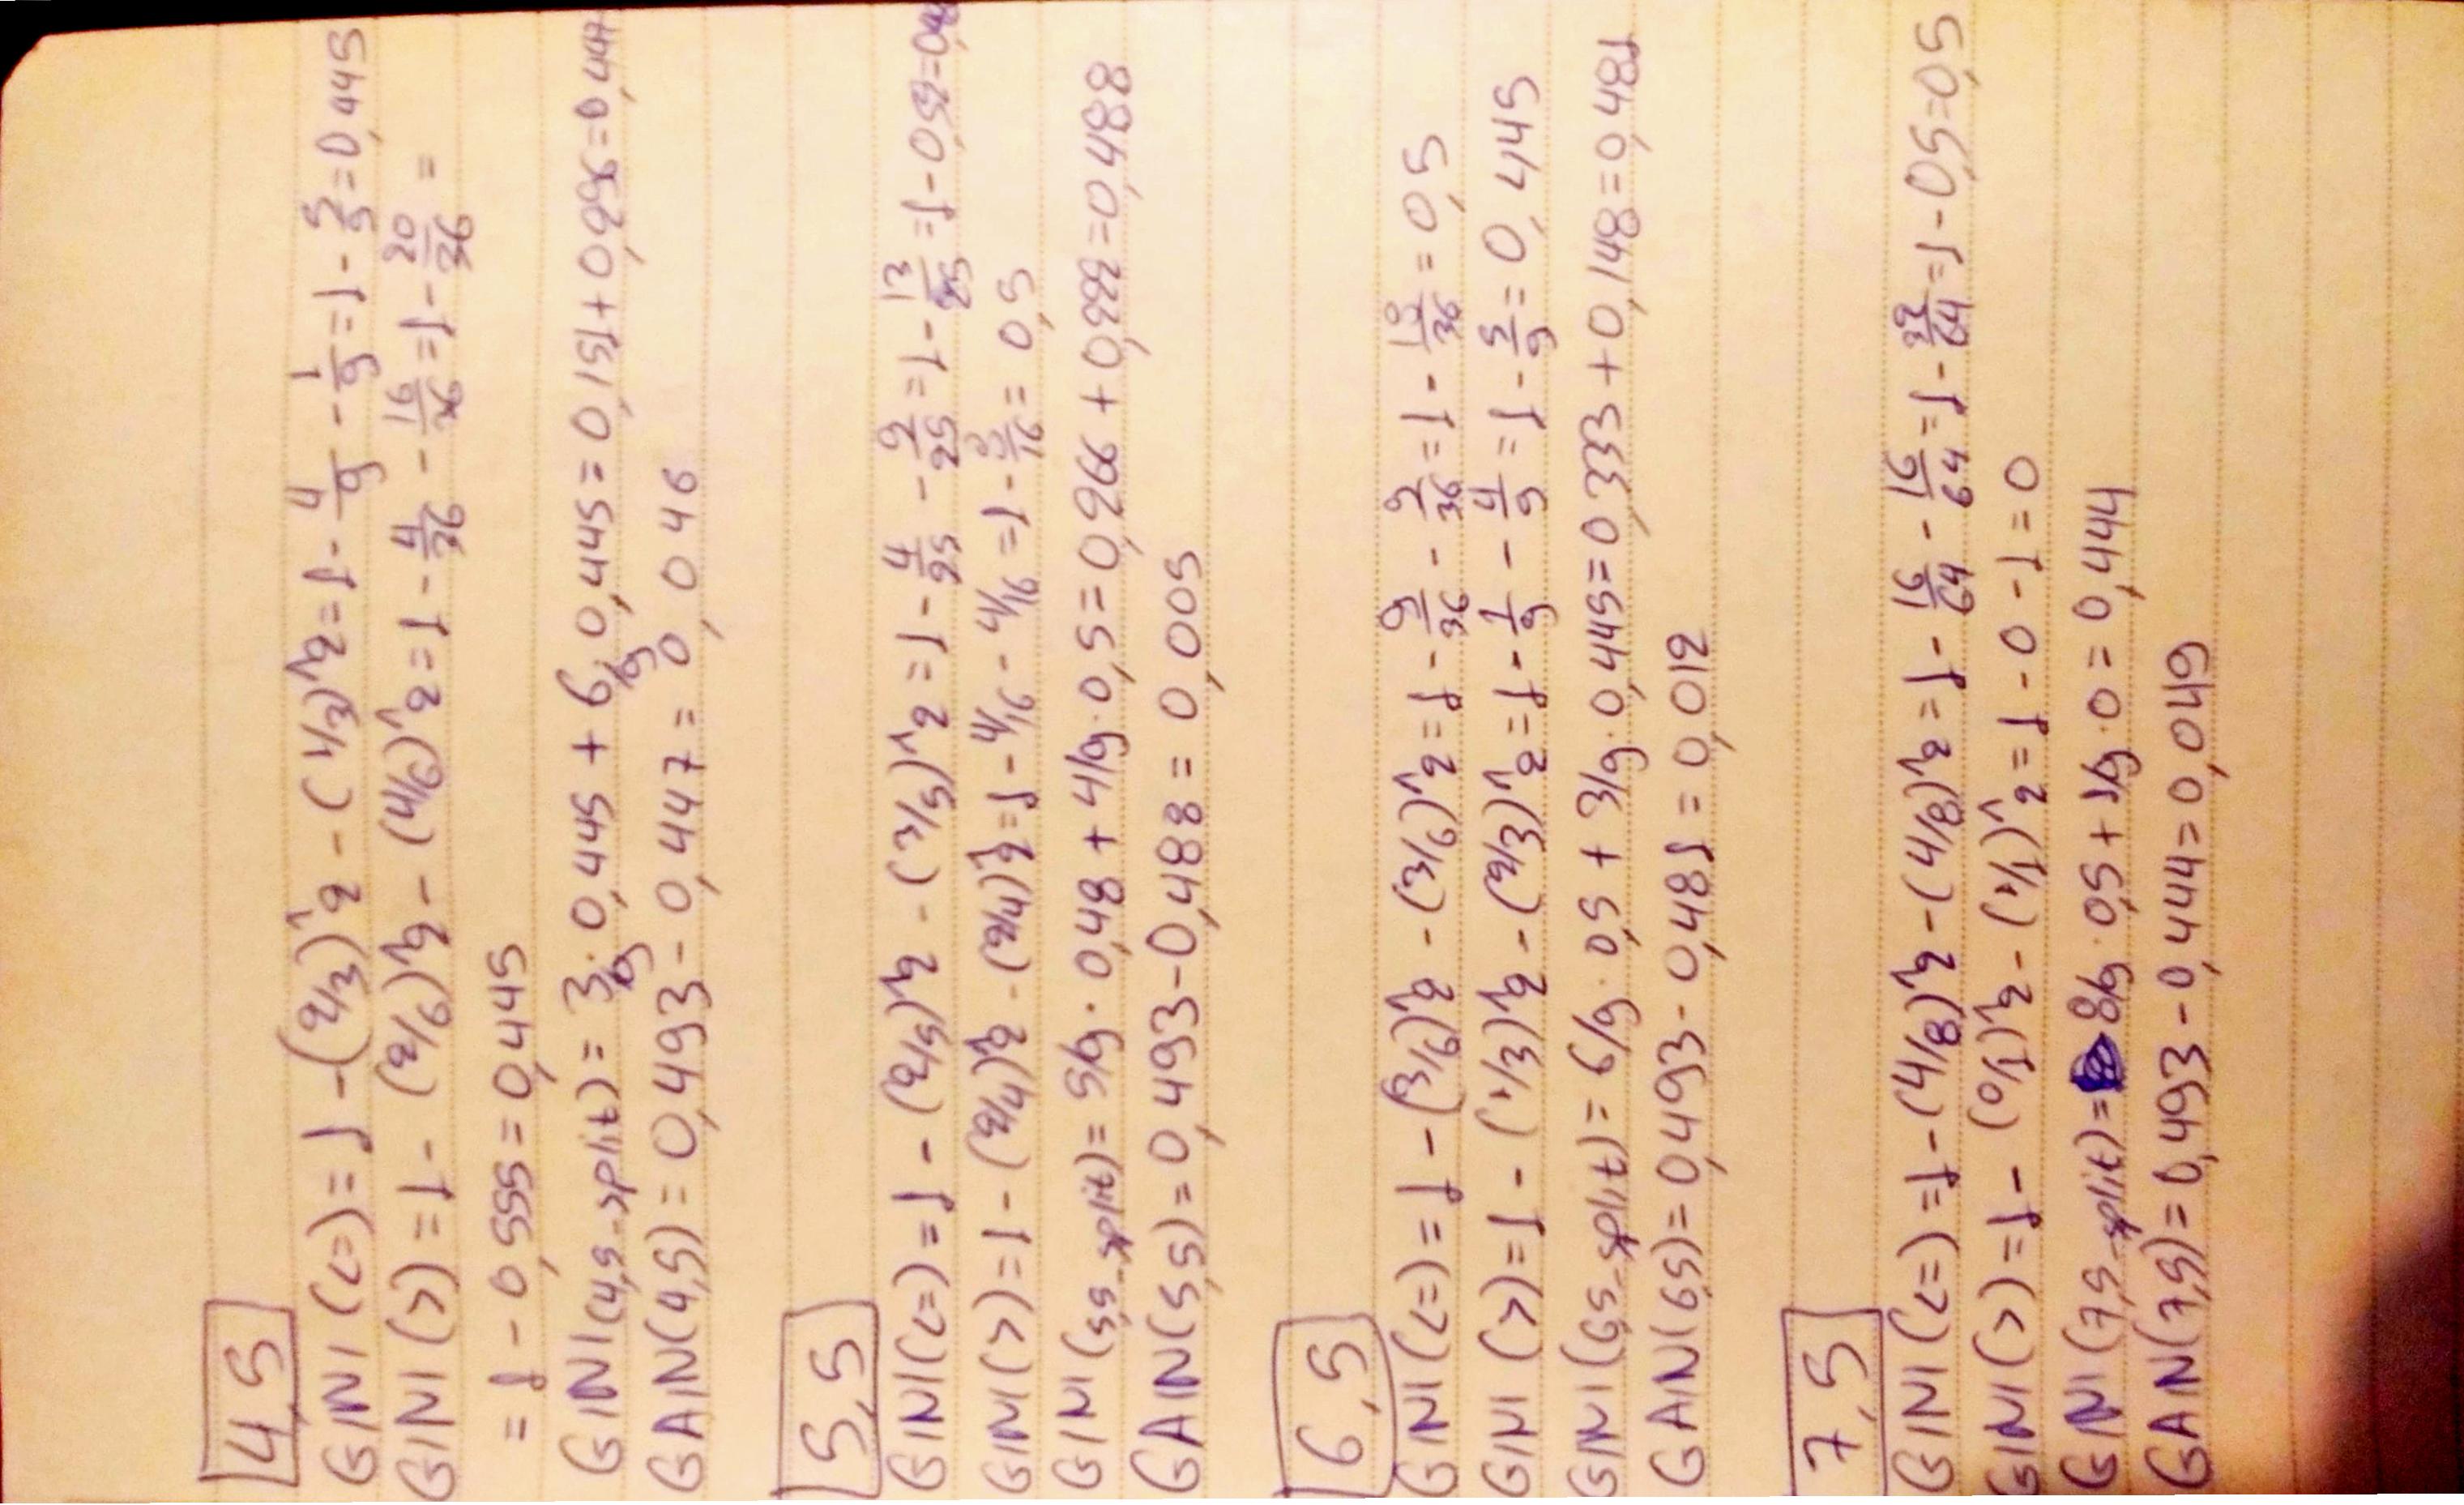 4,5
GINI (<=) = 1 - (2/3)^2 - (1/3)^2 = 1 - 4/9 - 1/9 = 1 - 5/9 = 0,445
GINI (>) = 1 - (2/6)^2 - (4/6)^2 = 1 - 4/36 - 16/36 = 1 - 20/36 =
= 1 - 0,555 = 0,445
GINI(4,5-split) = 3/9 · 0,445 + 6/9 · 0,445 = 0,151 + 0,296 = 0,447
GAIN(4,5) = 0,493 - 0,447 = 0,046
5,5
GINI(<=) = 1 - (2/5)^2 - (3/5)^2 = 1 - 4/25 - 9/25 = 1 - 13/25 = 1 - 0,52 = 0,48
GINI(>) = 1 - (2/4)^2 - (2/4)^2 = 1 - 4/16 - 4/16 = 1 - 8/16 = 0,5
GINI(5,5-split) = 5/9 · 0,48 + 4/9 · 0,5 = 0,266 + 0,222 = 0,488
GAIN(5,5) = 0,493 - 0,488 = 0,005
6,5
GINI(<=) = 1 - (3/6)^2 - (3/6)^2 = 1 - 9/36 - 9/36 = 1 - 18/36 = 0,5
GINI (>) = 1 - (1/3)^2 - (2/3)^2 = 1 - 1/9 - 4/9 = 1 - 5/9 = 0,445
GINI(6,5-split) = 6/9 · 0,5 + 3/9 · 0,445 = 0,333 + 0,148 = 0,481
GAIN(6,5) = 0,493 - 0,481 = 0,012
7,5
GINI (<=) = 1 - (4/8)^2 - (4/8)^2 = 1 - 16/64 - 16/64 = 1 - 32/64 = 1 - 0,5 = 0,5
GINI(>) = 1 - (0/1)^2 - (1/1)^2 = 1 - 0 - 1 = 0
GINI(7,5-split) = 8/9 · 0,5 + 1/9 · 0 = 0,444
GAIN(7,5) = 0,493 - 0,444 = 0,049